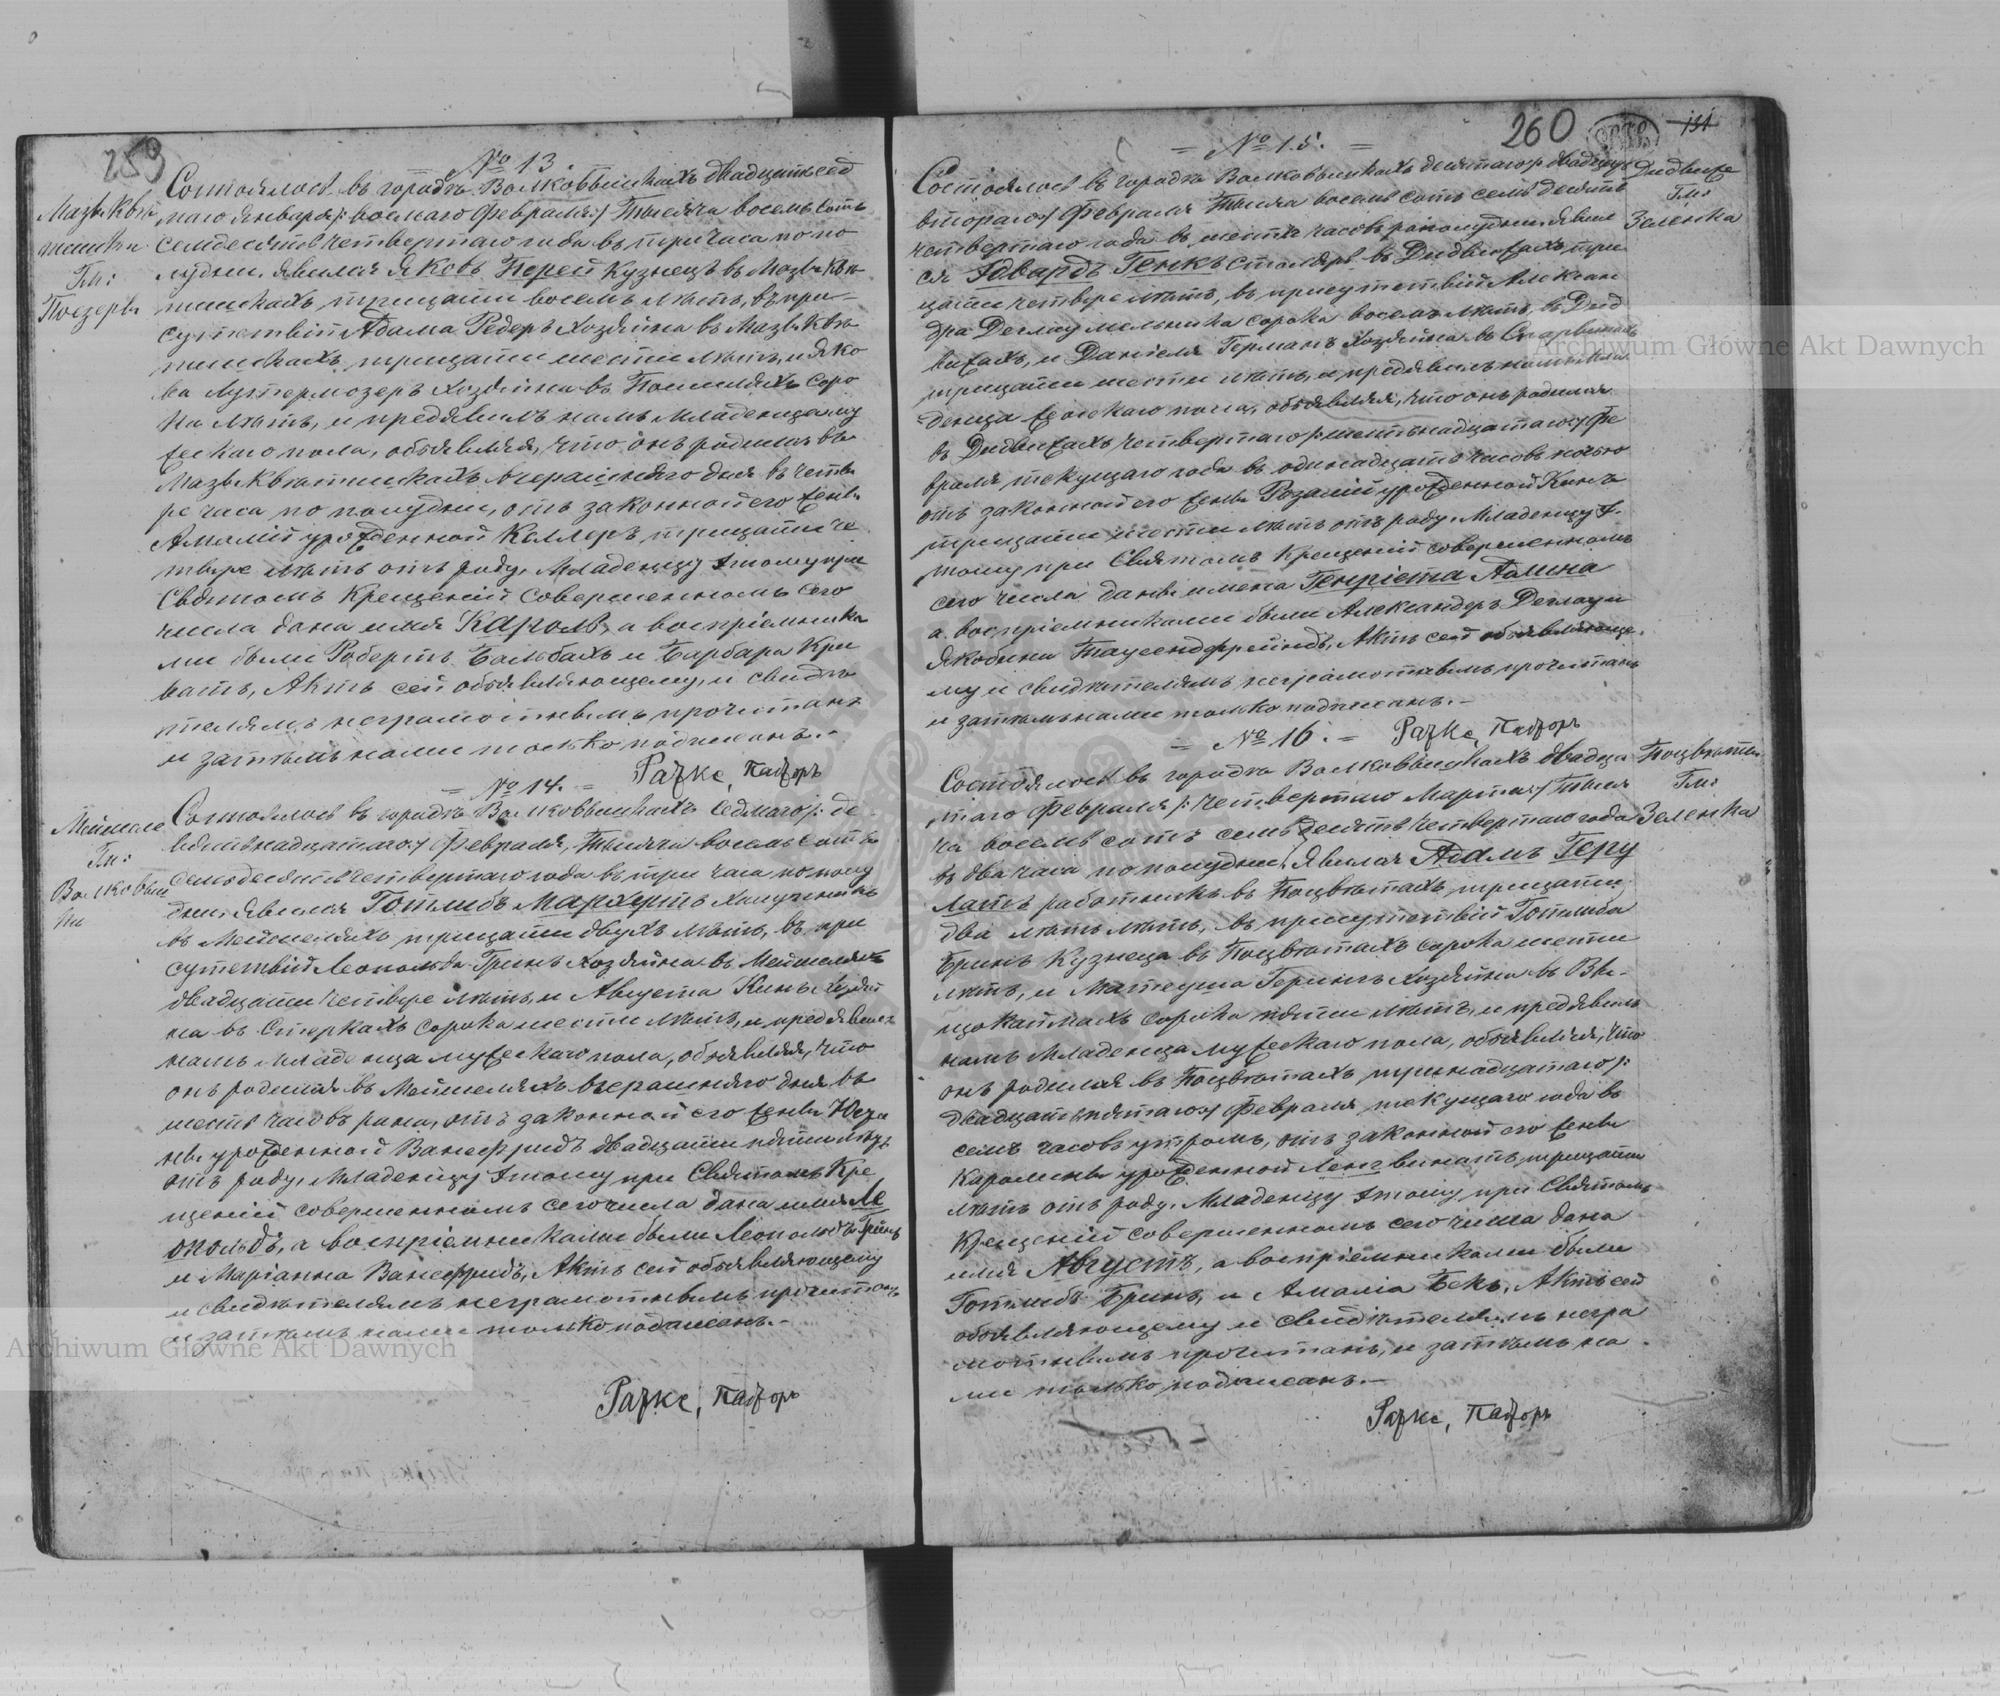 259
№ 13.
Мазы Квѣ
тишки
Гм:
Поезеры
Состоялось въ городкѣ Волковышкахъ двадцать сед
маго Января /: восмаго Февраля :/ Тысяча восемь сотъ
семдесятъ четвертаго года въ три часа по по
лудни. Явился Яковъ Перей Кузнецъ въ Мазы Квѣ
тишкахъ, тридцати восемь лѣтъ, въ при-
сутствіи Адама Редеръ Хозяина въ Мазы Квѣ
тишкахъ, тридцати шести лѣтъ, и Яко
ва Лутермозеръ Хозяина въ соро
ка лѣтъ, и предъявилъ намъ Младенца му
жескаго пола, объявляя, что онъ родился въ
Мазы Квѣтишкахъ вчерашняго дня въ четы
ре часа по полудни, отъ законной его жены
Амаліи урожденной Келлеръ, тридцати че
тыре лѣтъ отъ роду. Младенцу этому при
Святомъ Крещеніи совершенномъ сего
числа дано имя Кароль, а воспріемника
ми были Робертъ Бальбахъ и Барбара Кри
ватъ, Актъ сей объявляющему, и свидѣ
телямъ неграмотнымъ прочитанъ
и затѣмъ нами только подписанъ.-
Рацке, Пасторъ
= № 14. =
Мейшеле
Гм:
Волковыш
ки
Состоялось въ городкѣ Волковышкахъ Седмаго /: де
вятьнадцатаго :/ Февраля, Тысяча восемь сотъ
семьдесятъ четвертаго года въ три часа по полу
дни. Явился Готлибъ Мархертъ
въ Мейшеляхъ тридцати двухъ лѣтъ, въ при
сутствіи Леопольда Гринъ Хозяина въ Мейшеляхъ
двадцати четыре лѣтъ, и Августа Кинъ Хозяи
на въ Стыркахъ сорока шести лѣтъ, и предъявилъ
намъ Младенца мужескаго пола, объявляя, что
онъ родился въ Мейшеляхъ вчерашняго дня въ
шесть часовъ рана, отъ законной его жены Юста
ны урожденной Ванефридъ двадцати пяти лѣтъ
отъ роду. Младенцу этому при Святомъ Кре
щеніи совершенномъ сего числа дано имя Ле
опольдъ, а воспріемниками были Леопольдъ Гринъ
и Маріанна Ванефридъ, Актъ сей объявляющему
и свидѣтелямъ неграмотнымъ прочитанъ
и затѣмъ нами только подписанъ.-
Рацке, Пасторъ
260
151
= № 15. =
Дыдвиже
Гм:
Зеленка
Состоялось въ городкѣ Волковышкахъ десятаго /: двадцать
втораго :/ Февраля Тысяча восемь сотъ семь десятъ
четвертаго года въ шесть часовъ по полудни. Явил
ся Эдвардъ Генкъ Столяръ въ Дыдвижахъ, три
цати четыре лѣтъ, въ присутствіи Алексан
дра Деглау мельника сорока восемь лѣтъ, въ Дыд
вижахъ, и Даніеля Германъ Хозяина въ
тридцати шести лѣтъ, и предъявилъ намъ Мла
денца женскаго пола, объявляя, что онъ родился
въ Дыдвижахъ четвертаго /: шестьнадцатаго :/ Фе
враля текущаго года въ одинадцать часовъ ночью
отъ законной его жены Розаліи урожденной Кинъ
тридцати шести лѣтъ отъ роду. Младенцу э-
тому при Святомъ Крещеніи совершенномъ
сего числа даны имена Генріета Полина
а воспріемниками были Александеръ Деглау и
Якобина Таусендфрейндъ, Актъ сей объявляюще-
му и свидѣтелямъ неграмотнымъ прочитанъ
и затѣмъ нами только подписанъ.-
Рацке, Пасторъ
= № 16. =
Поцвѣты
Гм:
Зеленка
Состоялось въ городкѣ Волковышкахъ двадца
таго Февраля /: четвертаго Марта :/ Тыся
ча восемь сотъ семь десятъ четвертаго года
въ два часа по полудни. Явился Адамъ Геру
латъ работникъ въ Поцвѣтахъ, тридцати
два лѣтъ лѣтъ, въ присутствіи Готлиба
Бринъ Кузнеца въ Поцвѣтахъ сорока шести
лѣтъ, и Матеуша Герингъ Хозяина въ Вы-
щокаймахъ сорока пяти лѣтъ, и предъявилъ
намъ Младенца мужескаго пола, объявляя, что
онъ родился въ Поцвѣтахъ тринадцатаго /:
двадцать пятаго :/ Февраля текущаго года въ
семь часовъ утромъ, отъ законной его жены
Каролины урожденной Ленгвинатъ, тридцати
лѣтъ отъ роду. Младенцу этому при Святомъ
Крещеніи совершенномъ сего числа дано
имя Августъ, а воспріемниками были
Готлибъ Бринъ, и Амалія Бекъ, Актъ сей
объявляющему и свидѣтелямъ негра
мотнымъ прочитанъ, и затѣмъ на
ми только подписанъ.-
Рацке, Пасторъ
Archiwum Główne Akt Dawnych
Archiwum Główne Akt Dawnych